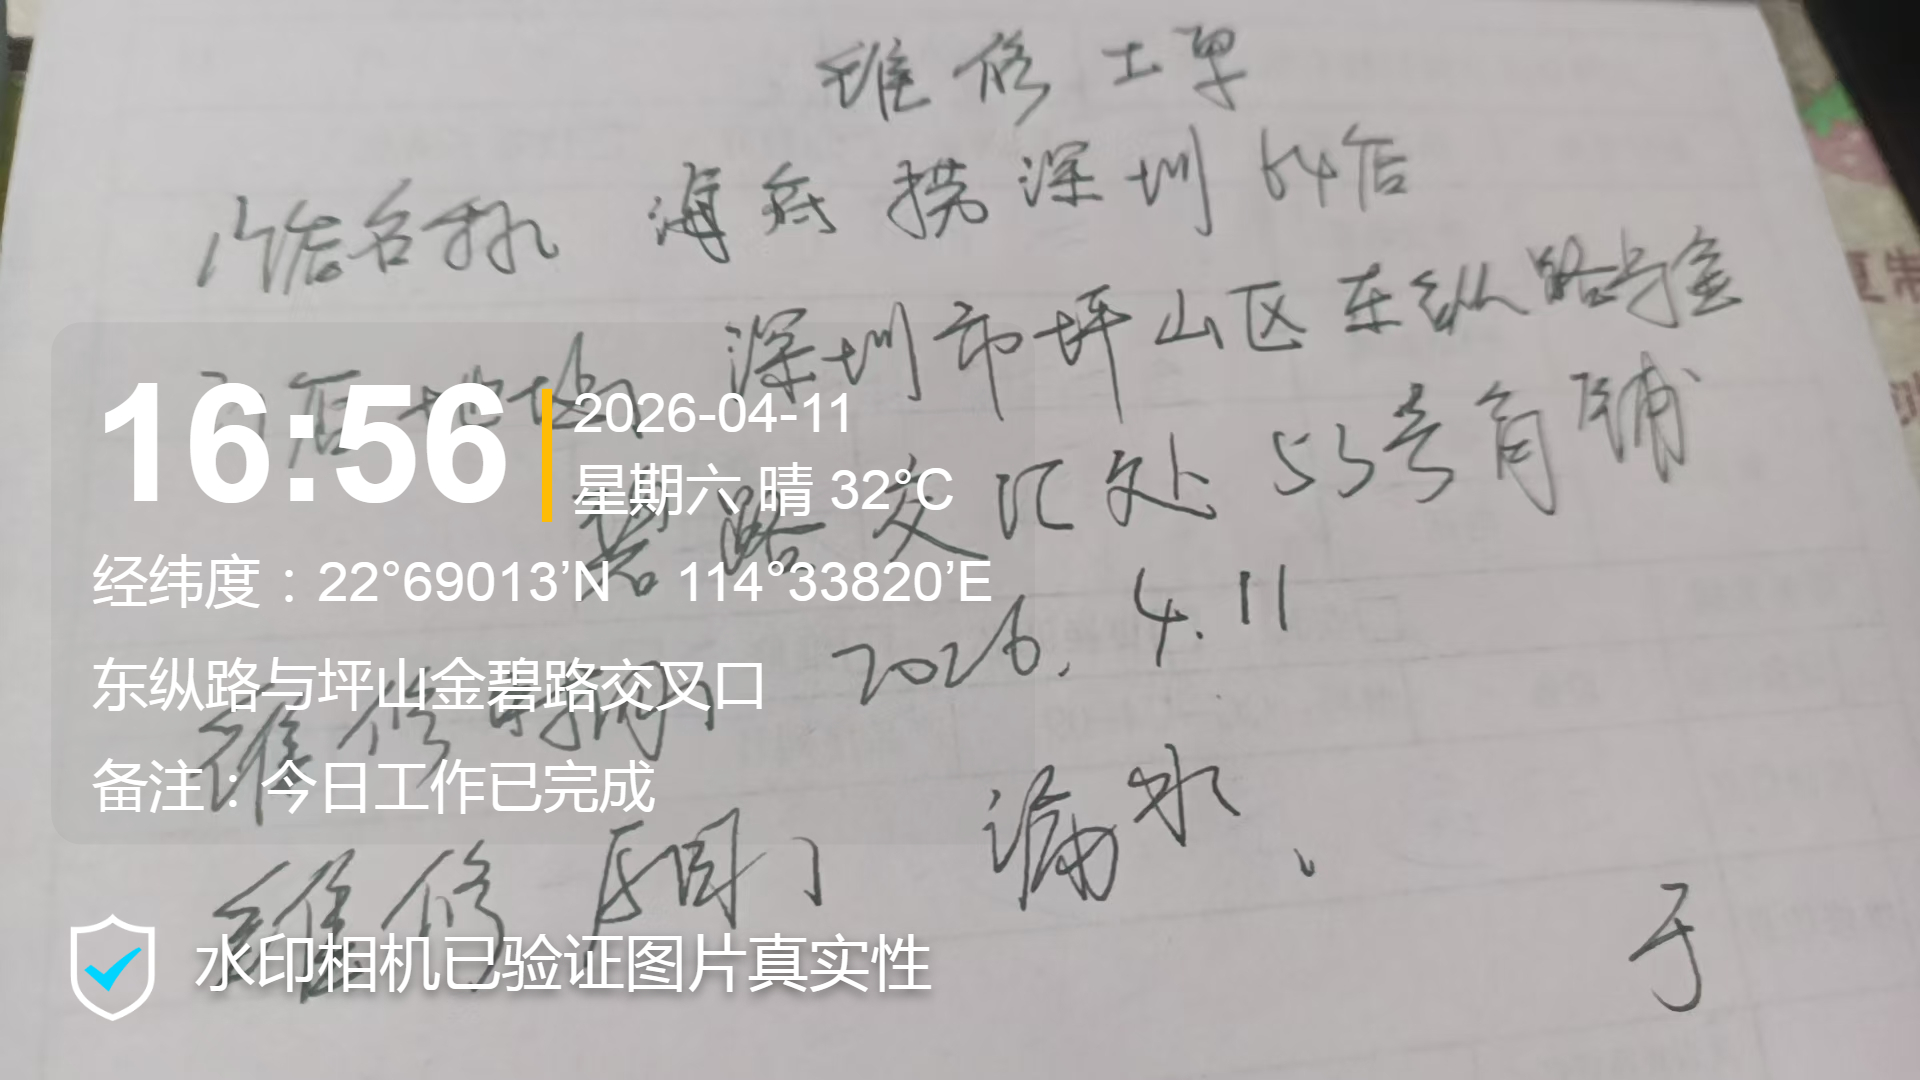 维修工单
门店名称 海底捞深圳64店
门店地址 深圳市坪山区东纵路与金
碧路交汇处 53号商铺
维修时间 2026.4.11
维修原因 漏水、
于
16:56
2026-04-11
星期六 晴 32°C
经纬度：22°69013’N 114°33820’E
东纵路与坪山金碧路交叉口
备注：今日工作已完成
水印相机已验证图片真实性
复制